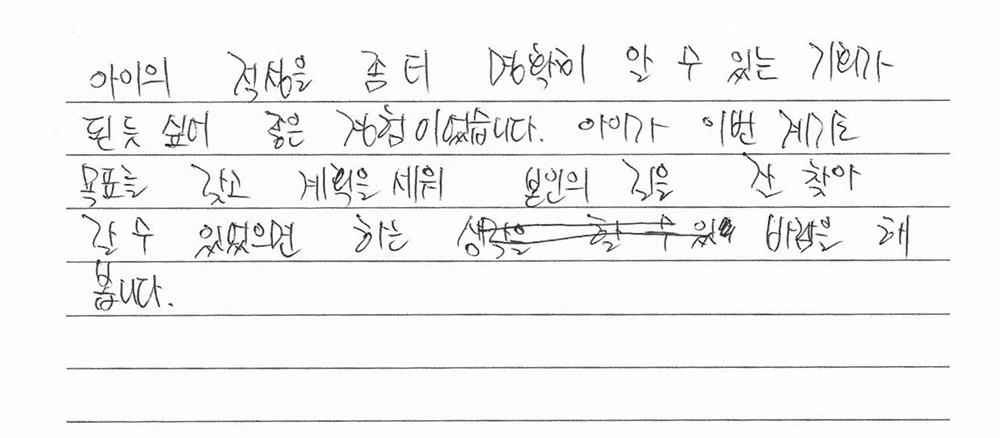 아이의 적성을 좀 더 명확히 알 수 있는 기회가
된듯 싶어 좋은 경험이었습니다. 아이가 이번 계기로
목표를 갖고 계획을 세워 본인의 길을 잘 찾아
갈 수 있었으면 하는 생각을 할 수 있 바램을 해
봅니다.